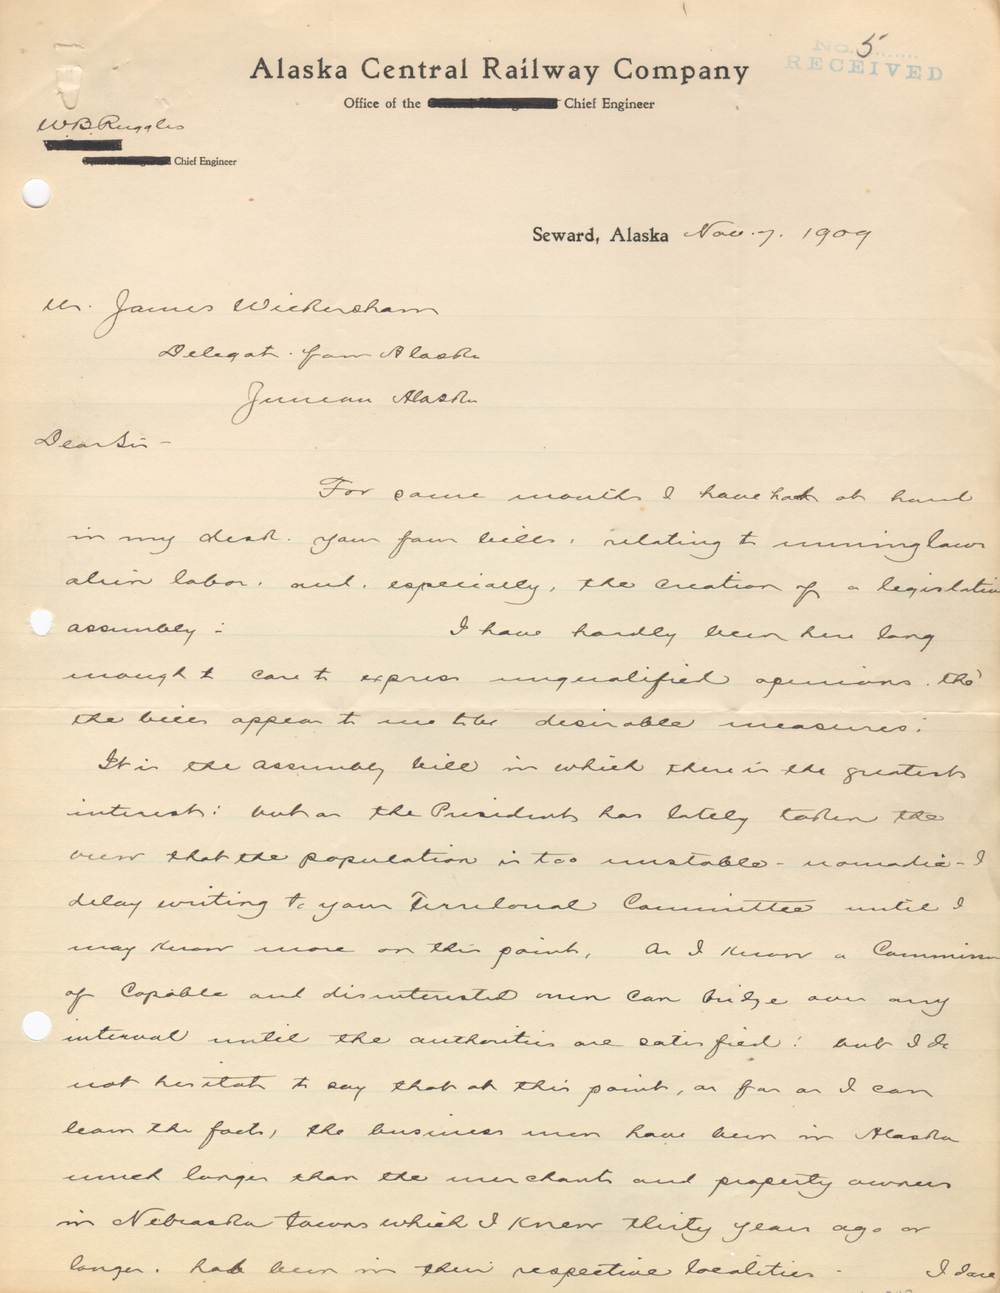 No. 5
RECEIVED
Alaska Central Railway Company
Office of the Chief Engineer
W.B. Ruggles
Chief Engineer
Seward, Alaska Nov. 7. 1909
Mr. James Wickersham
Delegate from Alaska
Juneau Alaska
Dear Sir -
For some months I have had at hand
in my desk. your four bills, relating to mining laws
alien labor, and, especially, the creation of a legislative
assembly: I have hardly been here long
enough to care to express unqualified opinions. tho'
the bills appear to me to be desirable measures:
It is the assembly bill in which there is the greatest
interest: but as the President has lately taken the
view that the population is too unstable - nomadic - I
delay writing to your Territorial Committee until I
may know more on this point, As I know a Commission
of capable and disinterested men can bridge over any
interval until the authorities are satisfied: but I do
not hesitate to say that at this point, as far as I can
learn the facts, the business men have been in Alaska
much longer than the merchants and property owners
in Nebraska towns which I knew thirty years ago or
longer. had been in their respective localities - I dare